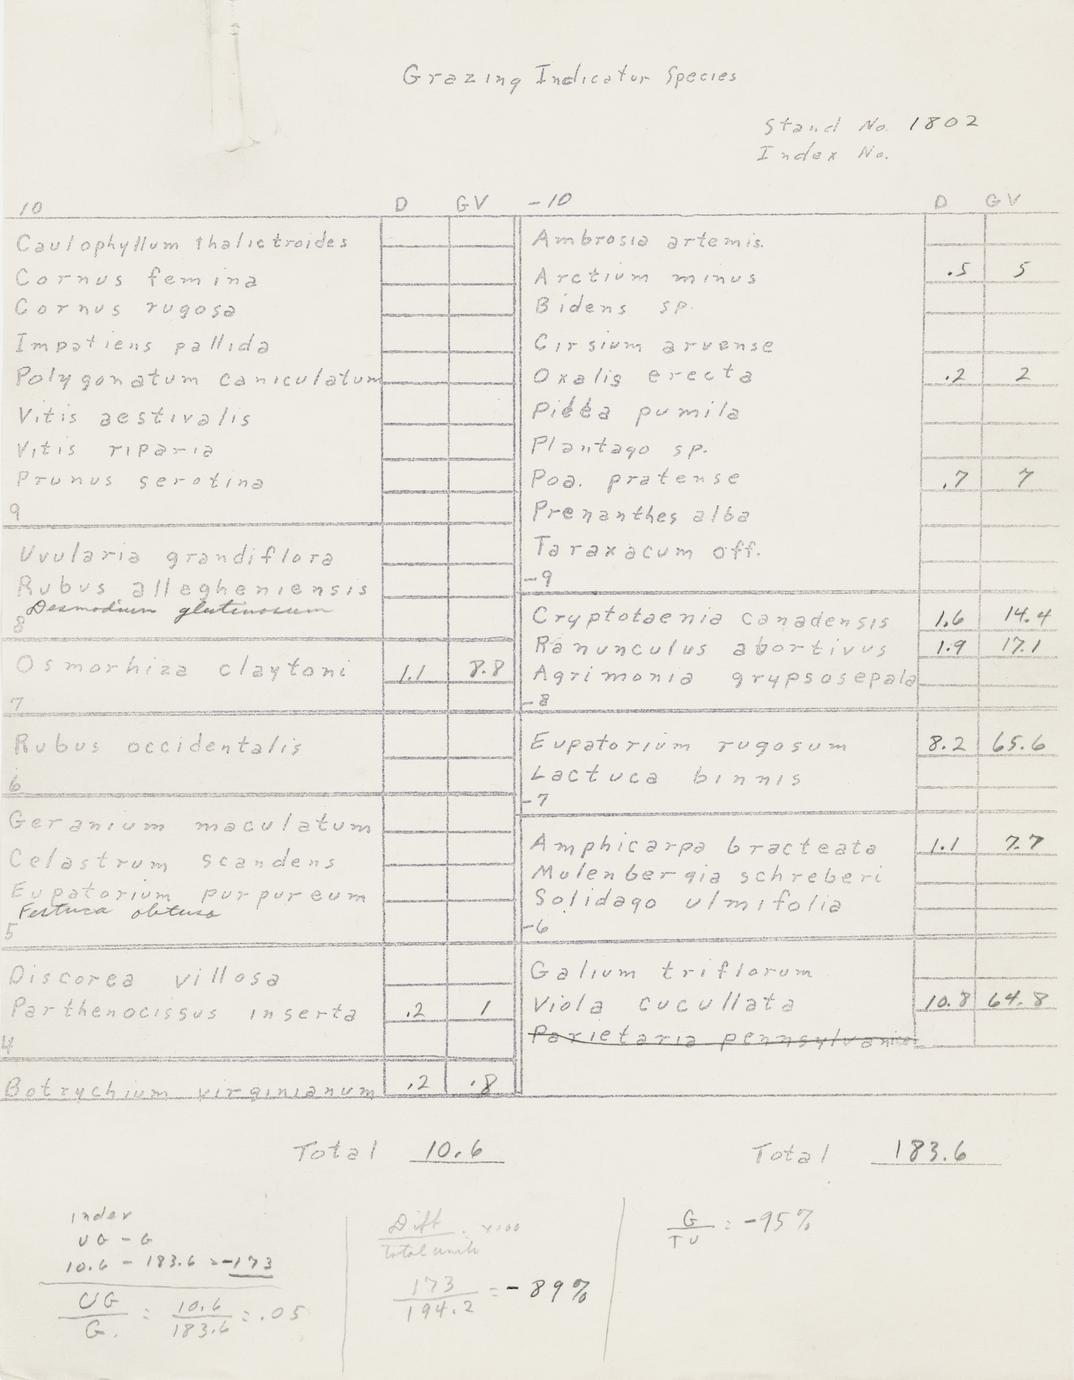 Grazing Indicator Species
Stand No. 1802
Index No.
10 D GV
Caulophyllum thalictroides
Cornus femina
Cornus rugosa
Impatiens pallida
Polygonatum caniculatum
Vitis aestivalis
Vitis riparia
Prunus serotina
9
Uvularia grandiflora
Rubus allegheniensis
Desmodium glutinosum
8
Osmorhiza claytoni 1.1 8.8
7
Rubus occidentalis
6
Geranium maculatum
Celastrum scandens
Eupatorium purpureum
Festuca obtusa
5
Discorea villosa
Parthenocissus inserta .2 1
4
Botrychium virginianum .2 .8
Total 10.6
-10 D GV
Ambrosia artemis.
Arctium minus .5 5
Bidens sp.
Cirsium arvense
Oxalis erecta .2 2
Pilea pumila
Plantago sp.
Poa. pratense .7 7
Prenanthes alba
Taraxacum off.
-9
Cryptotaenia canadensis 1.6 14.4
Ranunculus abortivus 1.9 17.1
Agrimonia grypsosepala
-8
Eupatorium rugosum 8.2 65.6
Lactuca binnis
-7
Amphicarpa bracteata 1.1 7.7
Mulenbergia schreberi
Solidago ulmifolia
-6
Galium triflorum
Viola cucullata 10.8 64.8
Parietaria pennsylvanica
Total 183.6
Index
UG - G
10.6 - 183.6 = -173
UG / G. = 10.6 / 183.6 = .05
Diff / Total units . x100
173 / 194.2 = -89%
G / TU = -95%